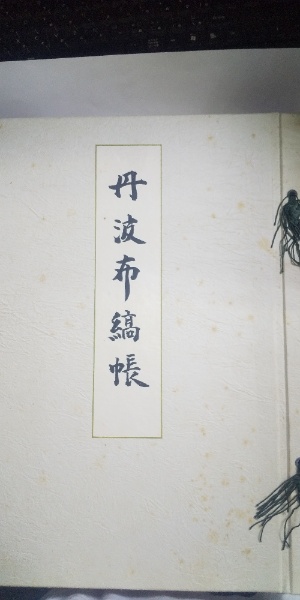 丹波布縞帳